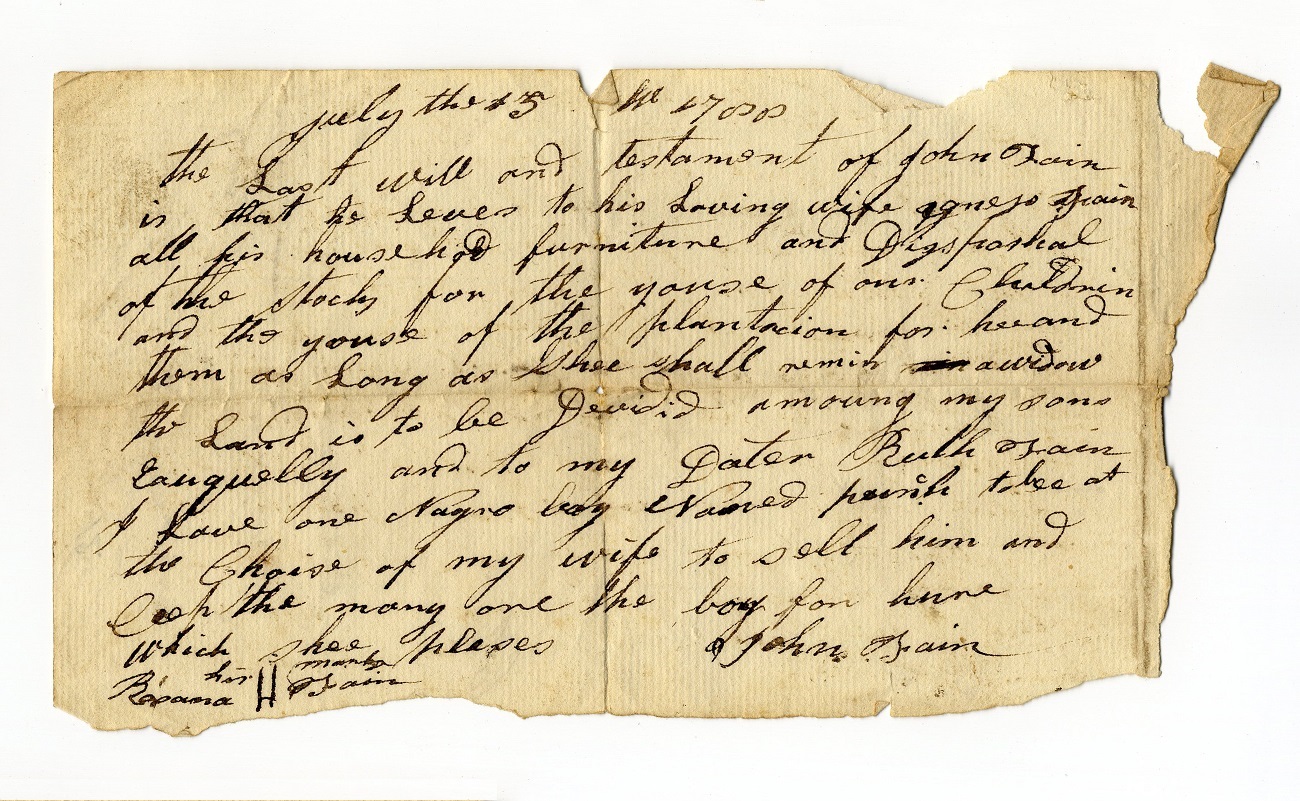 July the 15 1788
the Last will and testament of John Fain
is that he Leves to his Loving wife agness Fain
all his househod furniture and Dissposhal
of the stock for the youse of our Childrin
and the youse of the plantacion for her and
them as Long as Shee shall remin a widow
the Land is to be Devidid amoung my sons
Eauquelly and to my Dater Ruth Fain
I Leave one Nagro boy Named to bee at
the Choise of my wife to sell him and
Ceep the mony ore the boy for hure
Which shee pleses John Fain
his mark
Rosana H Fain